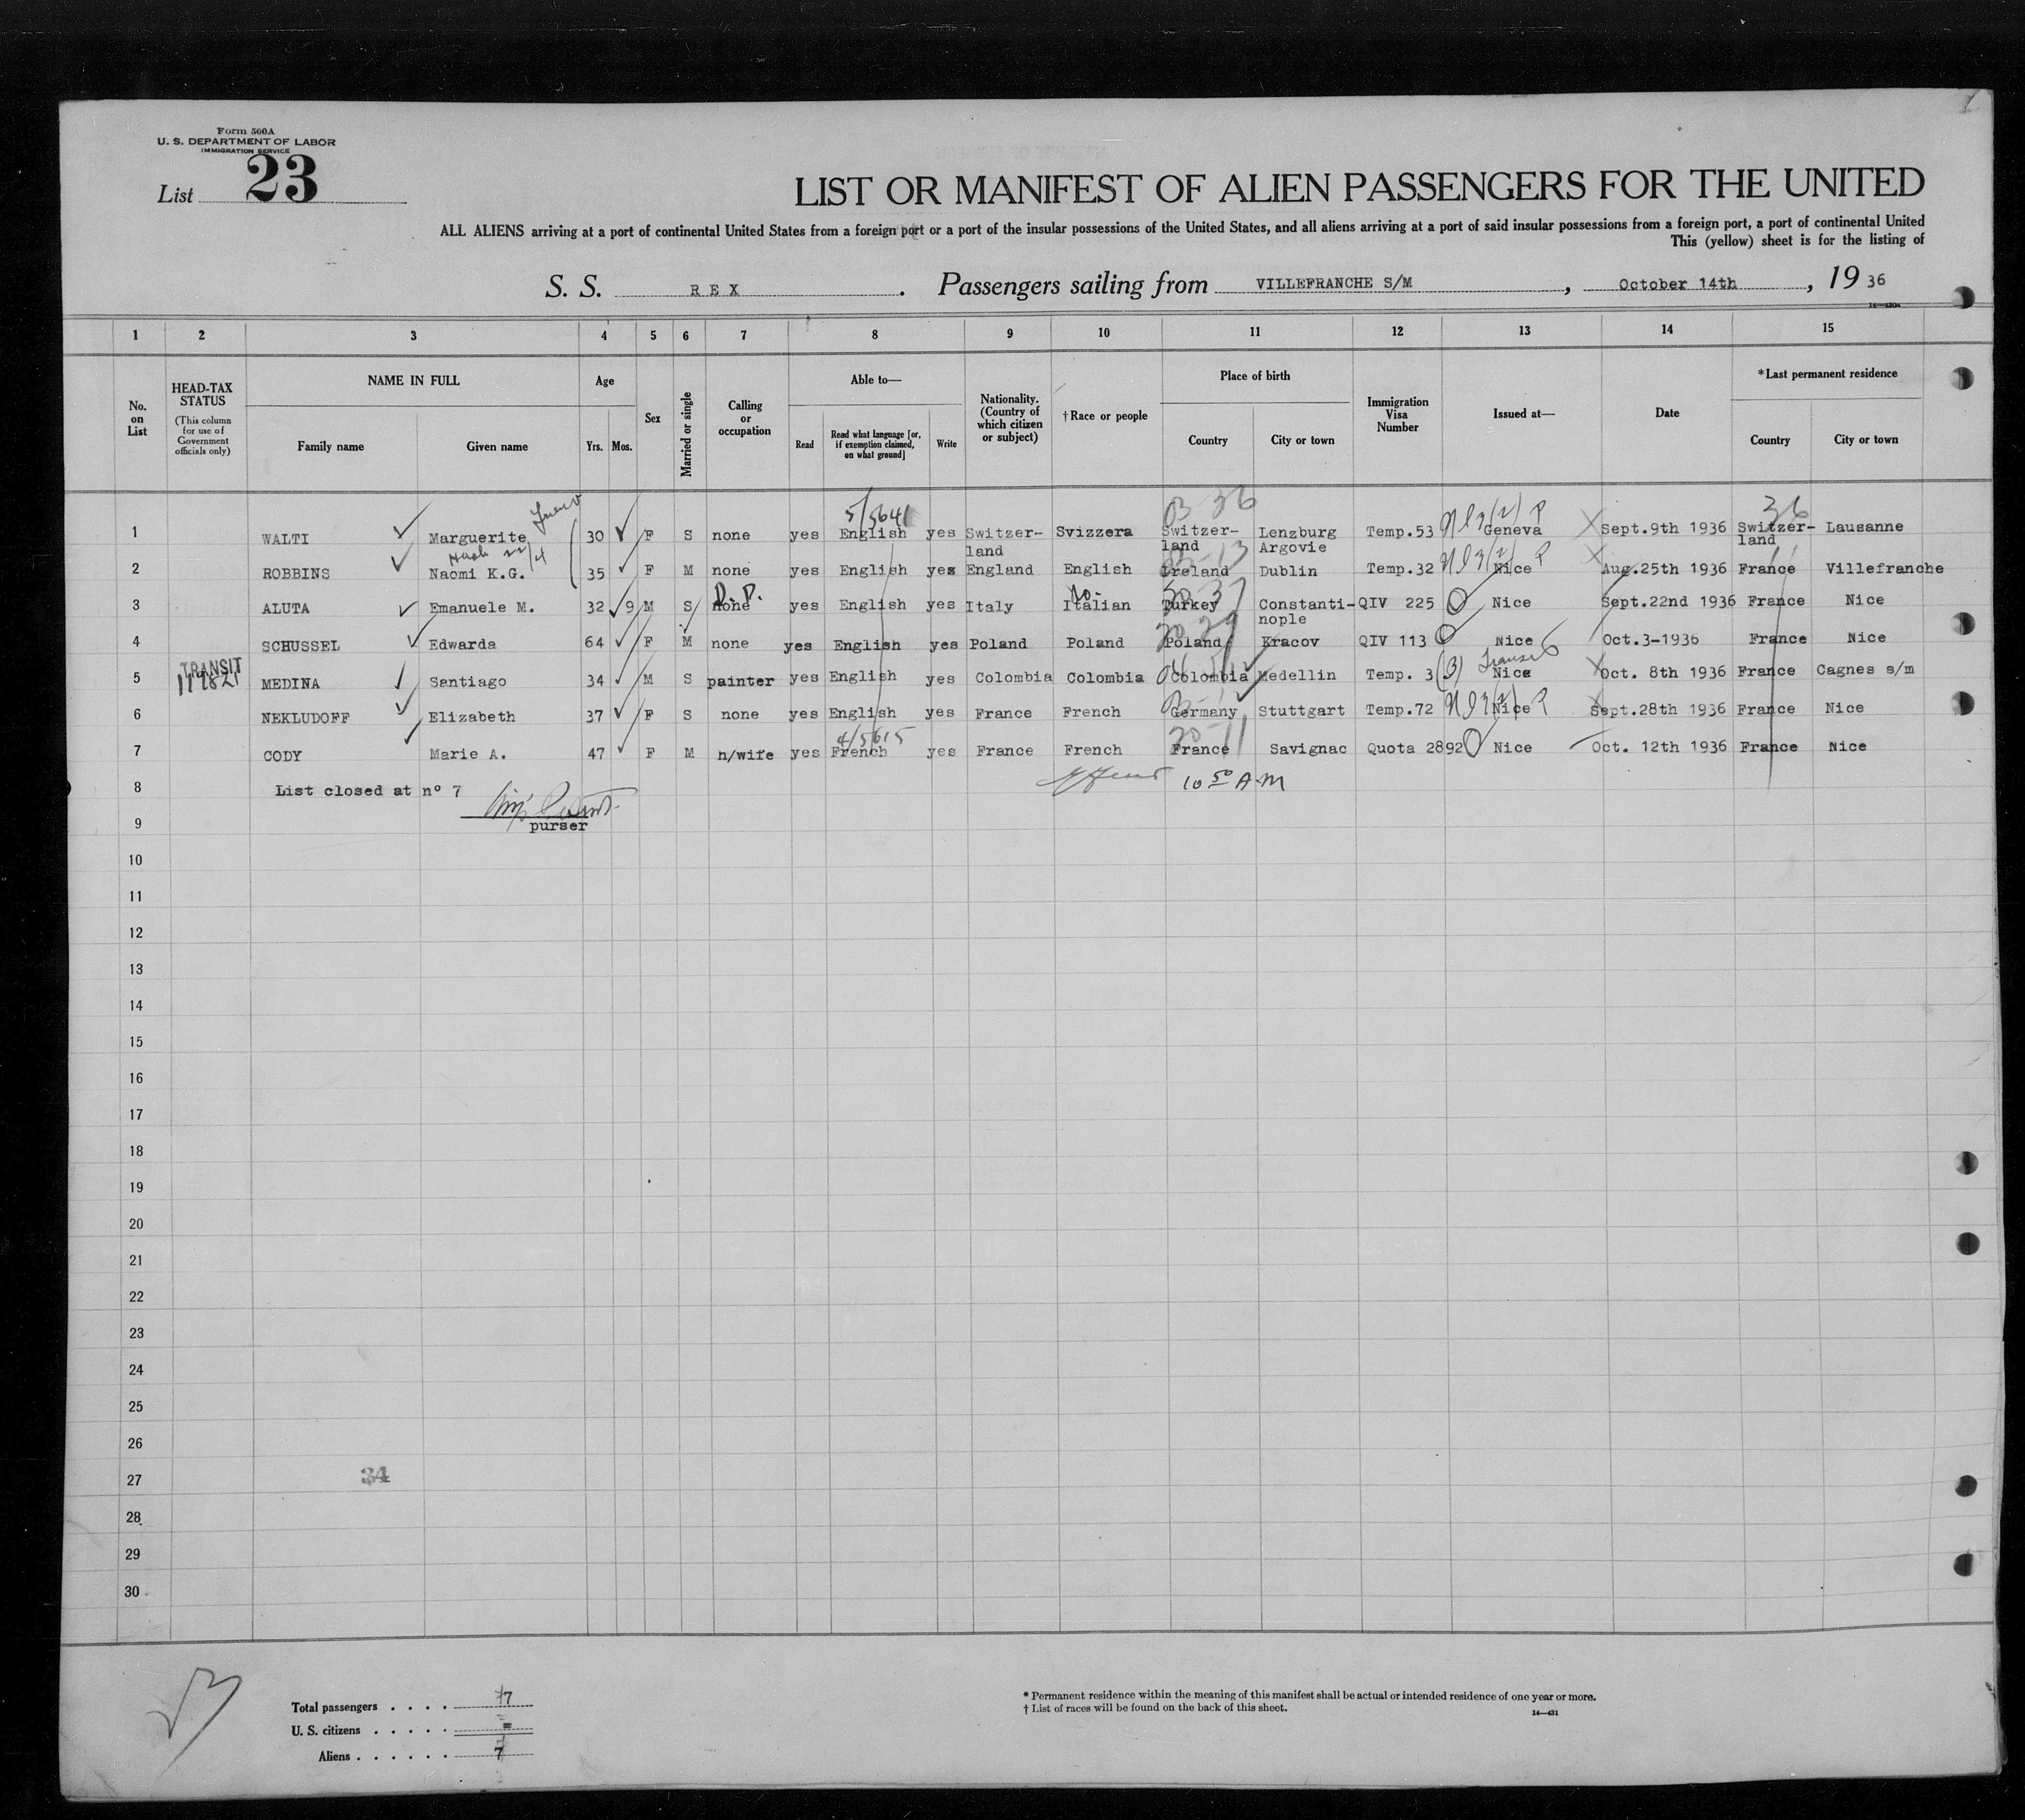 Form 500A
U. S. DEPARTMENT OF LABOR
IMMIGRATION SERVICE
List 23
LIST OR MANIFEST OF ALIEN PASSENGERS FOR THE UNITED
ALL ALIENS arriving at a port of continental United States from a foreign port or a port of the insular possessions of the United States, and all aliens arriving at a port of said insular possessions from a foreign port, a port of continental United
This (yellow) sheet is for the listing of
S. S. REX. Passengers sailing from VILLEFRANCHE S/M, October 14th, 1936
1 2 3 4 5 6 7 8 9 10 11 12 13 14 15
No. on List
HEAD-TAX STATUS
(This column for use of Government officials only)
NAME IN FULL
Family name Given name
Age
Yrs. Mos.
Sex
Married or single
Calling or occupation
Able to—
Read
Read what language [or, if exemption claimed, on what ground]
Write
Nationality. (Country of which citizen or subject)
†Race or people
Place of birth
Country City or town
Immigration Visa Number
Issued at—
Date
*Last permanent residence
Country City or town
5/5641 36
1 WALTI Marguerite 30 F S none yes English yes Switzer-land Svizzera Switzer-land Lenzburg Argovie Temp.53 Geneva Sept.9th 1936 Switzer-land Lausanne
2 ROBBINS Naomi K.G. 35 F M none yes English yes England English Ireland Dublin Temp.32 Nice Aug.25th 1936 France Villefranche
D.P.
3 ALUTA Emanuele M. 32 9 M S none yes English yes Italy Italian Turkey Constanti-nople QIV 225 Nice Sept.22nd 1936 France Nice
4 SCHUSSEL Edwarda 64 F M none yes English yes Poland Poland Poland Kracov QIV 113 Nice Oct.3-1936 France Nice
TRANSIT
5 MEDINA Santiago 34 M S painter yes English yes Colombia Colombia Colombia Medellin Temp. 3 (3) Nice Oct. 8th 1936 France Cagnes s/m
6 NEKLUDOFF Elizabeth 37 F S none yes English yes France French Germany Stuttgart Temp.72 Nice Sept.28th 1936 France Nice
4/5615
7 CODY Marie A. 47 F M h/wife yes French yes France French France Savignac Quota 2892 Nice Oct. 12th 1936 France Nice
8 List closed at n° 7
10 50 A M
purser
9
10
11
12
13
14
15
16
17
18
19
20
21
22
23
24
25
26
27
34
28
29
30
Total passengers . . . . 7
U. S. citizens . . . . . =
Aliens . . . . . . 7
* Permanent residence within the meaning of this manifest shall be actual or intended residence of one year or more.
† List of races will be found on the back of this sheet.
14—431